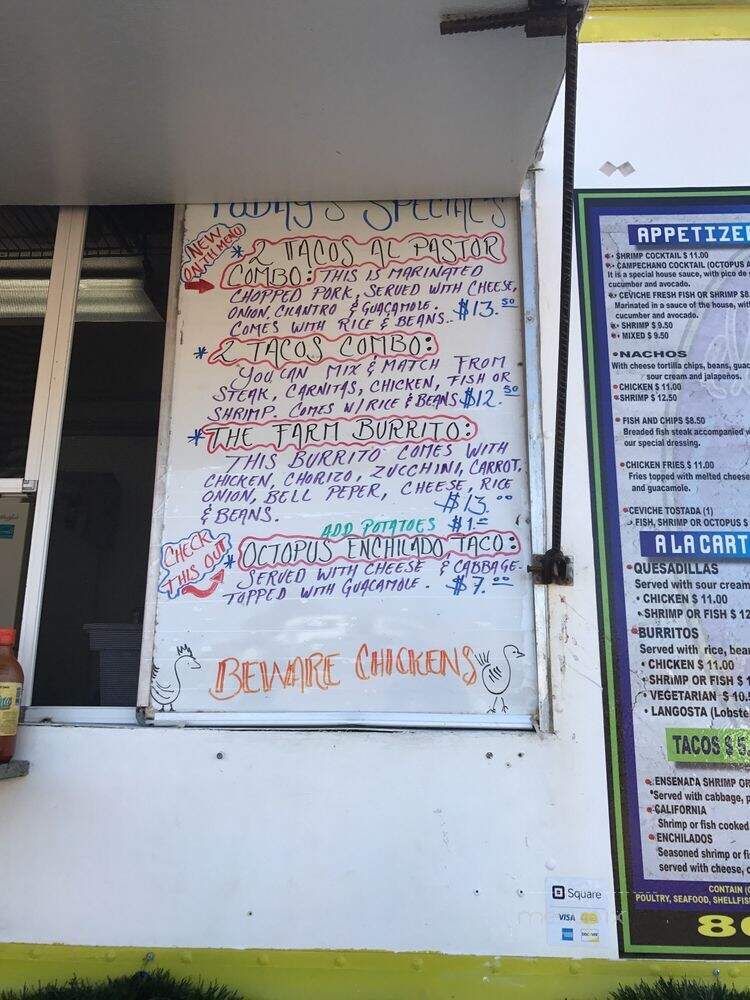 TODAY'S SPECIALS
NEW
ON TH MENU
* 2 TACOS AL PASTOR
COMBO: THIS IS MARINATED
CHOPPED PORK, SERVED WITH CHEESE,
ONION, CILANTRO & GUACAMOLE. $13.50
COMES WITH RICE & BEANS..
* 2 TACOS COMBO:
YOU CAN MIX & MATCH FROM
STEAK, CARNITAS, CHICKEN, FISH OR
SHRIMP. COMES W/RICE & BEANS $12.50
* THE FARM BURRITO:
THIS BURRITO COMES WITH
CHICKEN, CHORIZO, ZUCCHINI, CARROT,
ONION, BELL PEPER, CHEESE, RICE
& BEANS. $13.00
ADD POTATOES $1.=
CHECK
THIS OUT
* OCTOPUS ENCHILADO TACO:
SERVED WITH CHEESE & CABBAGE.
TOPPED WITH GUACAMOLE. $7.00
BEWARE CHICKENS
APPETIZE
SHRIMP COCKTAIL $ 11.00
CAMPECHANO COCKTAIL (OCTOPUS A
It is a special house sauce, with pico de
cucumber and avocado.
CEVICHE FRESH FISH OR SHRIMP $8.
Marinated in a sauce of the house, wit
cucumber and avocado.
SHRIMP $ 9.50
MIXED $ 9.50
• NACHOS
With cheese tortilla chips, beans, guac
sour cream and jalapeños.
CHICKEN $ 11.00
SHRIMP $ 12.50
FISH AND CHIPS $8.50
Breaded fish steak accompanied w
our special dressing.
CHICKEN FRIES $ 11.00
Fries topped with melted cheese
and guacamole.
CEVICHE TOSTADA (1)
FISH, SHRIMP OR OCTOPUS $
A LA CART
QUESADILLAS
Served with sour cream
• CHICKEN $ 11.00
• SHRIMP OR FISH $ 12
BURRITOS
Served with rice, bea
• CHICKEN $ 11.00
• SHRIMP OR FISH $ 1
• VEGETARIAN $ 10.5
• LANGOSTA (Lobste
TACOS $ 5.
ENSENADA SHRIMP OR
*Served with cabbage, p
CALIFORNIA
Shrimp or fish cooked
ENCHILADOS
Seasoned shrimp or fi
served with cheese, c
CONTAIN (
POULTRY, SEAFOOD, SHELLFIS
80
Square
VISA